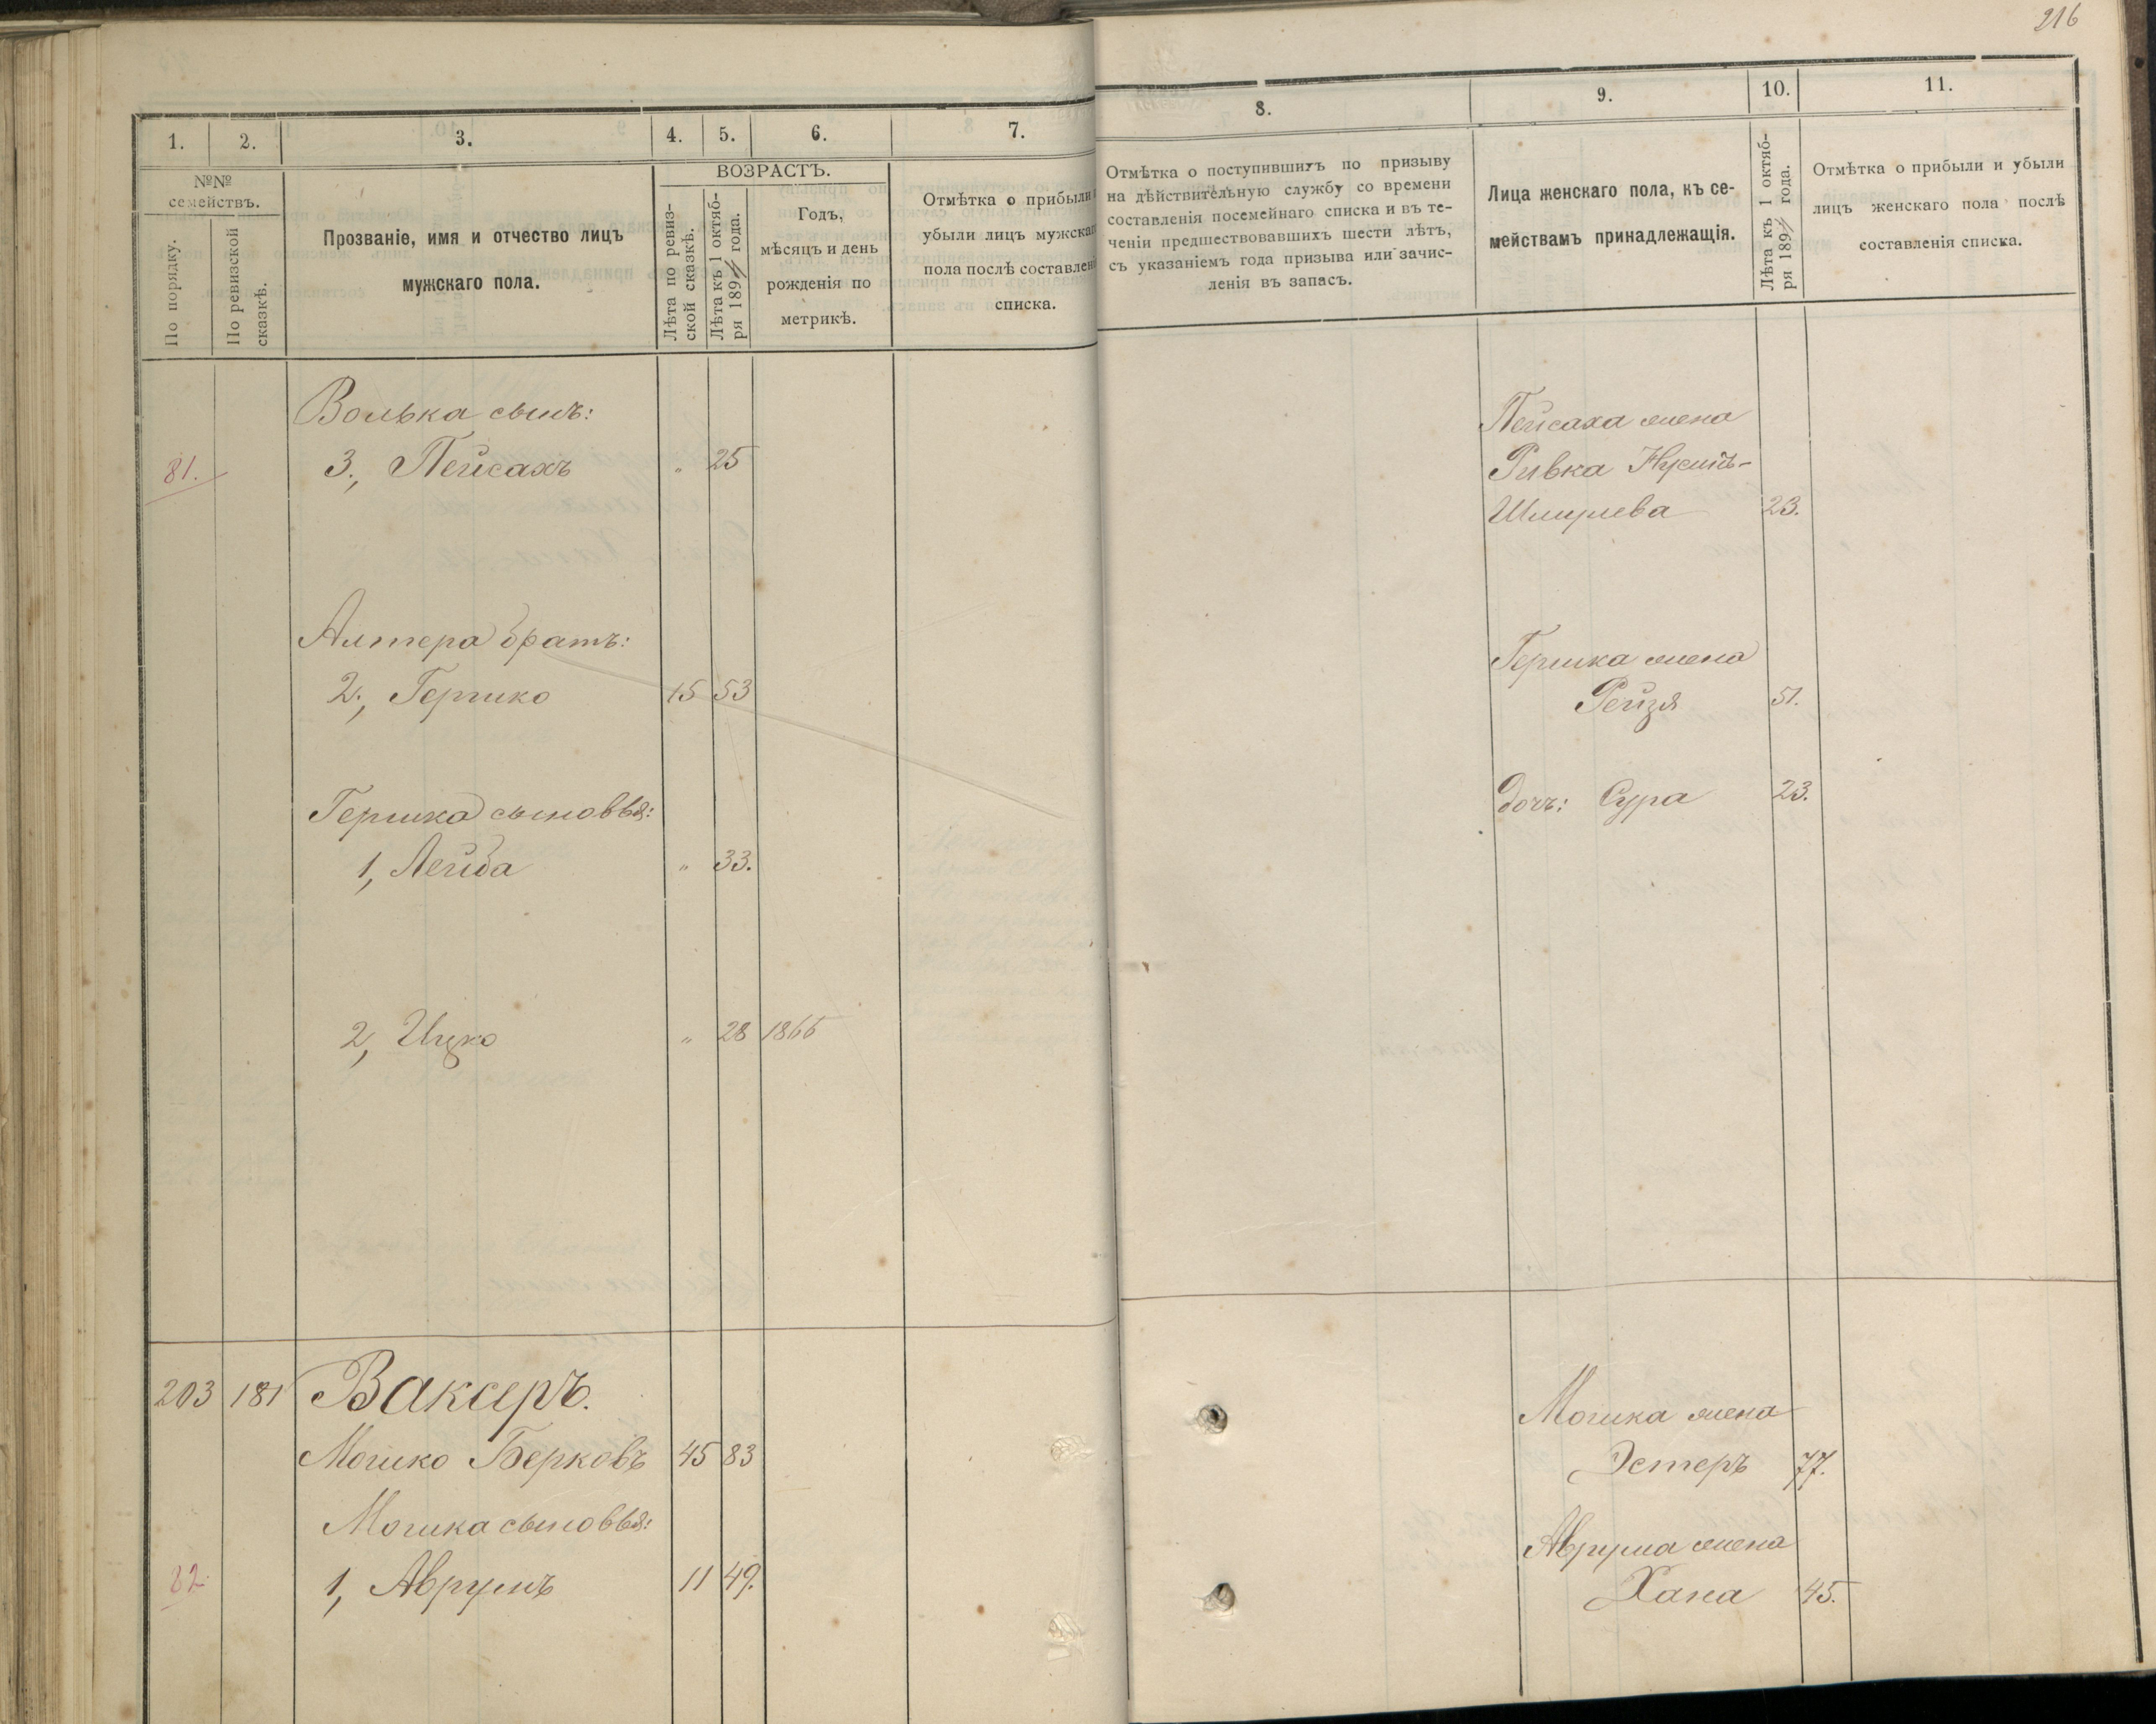 216
1.
2.
3.
4.
5.
6.
7.
№№ семействъ.
По порядку.
По ревизской сказкѣ.
Прозваніе, имя и отчество лицъ
мужскаго пола.
ВОЗРАСТЪ.
Лѣта по ревиз-
ской сказкѣ.
Лѣта къ 1 октяб-
ря 189 года.
Годъ,
мѣсяцъ и день
рожденія по
метрикѣ.
Отмѣтка о прибыли
убыли лицъ мужска
пола послѣ составлен
списка.
Волька сынъ:
81. 3., Пейсахъ " 25
Алтера братъ:
2., Гершко 15 53
Гершка сыновья:
1, Лейба " 33.
2, Ицко " 28 1866
203 181 Ваксеръ.
Мошко Берковъ 45 83
Мошка сыновья:
82. 1, Аврумъ 11 49.
8.
9.
10.
11.
Отмѣтка о поступившихъ по призыву
на дѣйствительную службу со времени
составленія посемейнаго списка и въ те-
ченіи предшествовавшихъ шести лѣтъ,
съ указаніемъ года призыва или зачис-
ленія въ запасъ.
Лица женскаго пола, къ се-
мействамъ принадлежащія.
Лѣта къ 1 октяб-
ря 189 года.
Отмѣтка о прибыли и убыли
лицъ женскаго пола послѣ
составленія списка.
Пейсаха жена
Ривка Нусинъ-
Шмулева 23.
Гершка жена
Рейзя 51.
дочь: Сура 23.
Мошка жена
Эстеръ 77.
Аврума жена
Хана 45.